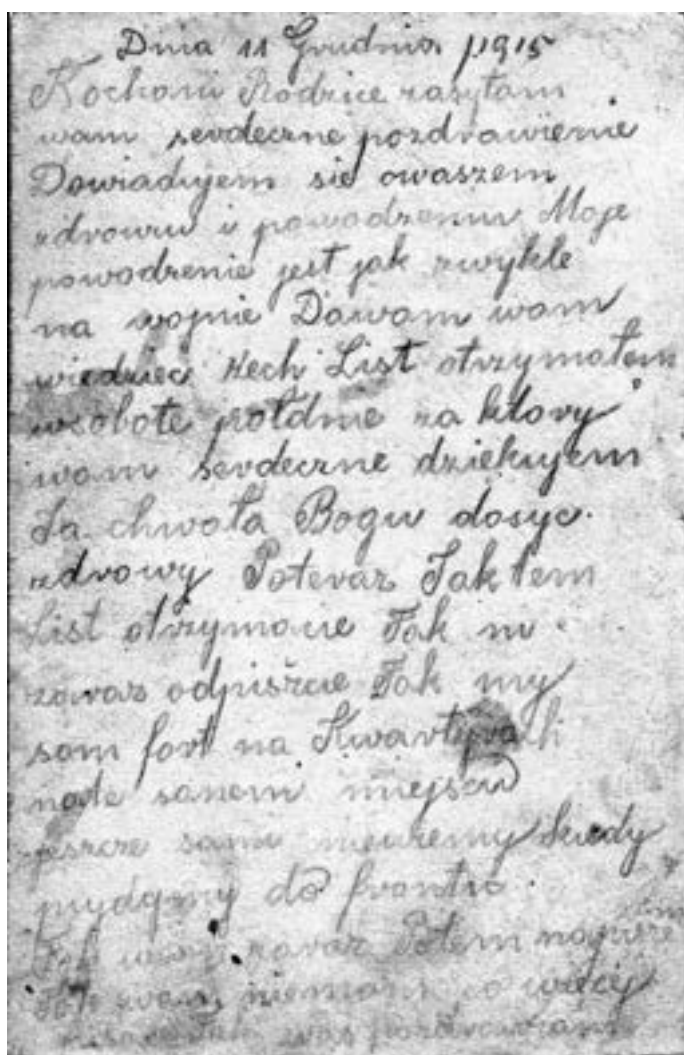 Dnia 11 Grudnia 1915
Kochani Rodzice zasyłam
wam serdeczne pozdrawienie
Dowiadujem sie owaszem
zdrowiu i powodzeniu Moje
powodzenie jest jak zwykle
na wojnie Dawam wam
wiedziec żech List otrzymałem
wsobote za ktory
wam serdeczne dziekujem
Ja chwała Bogu dosyc
zdrowy Poteraz Jak tem
List otrzymacie Tak mi
zaraz odpiszcie Tak my
som fort na Kwartyrach
nate samem miejscu
jeszcze sami niewiemy kiedy
pujdymy do frontu
zaraz Potem
wam niemom co wiecij
was pozdrawiam